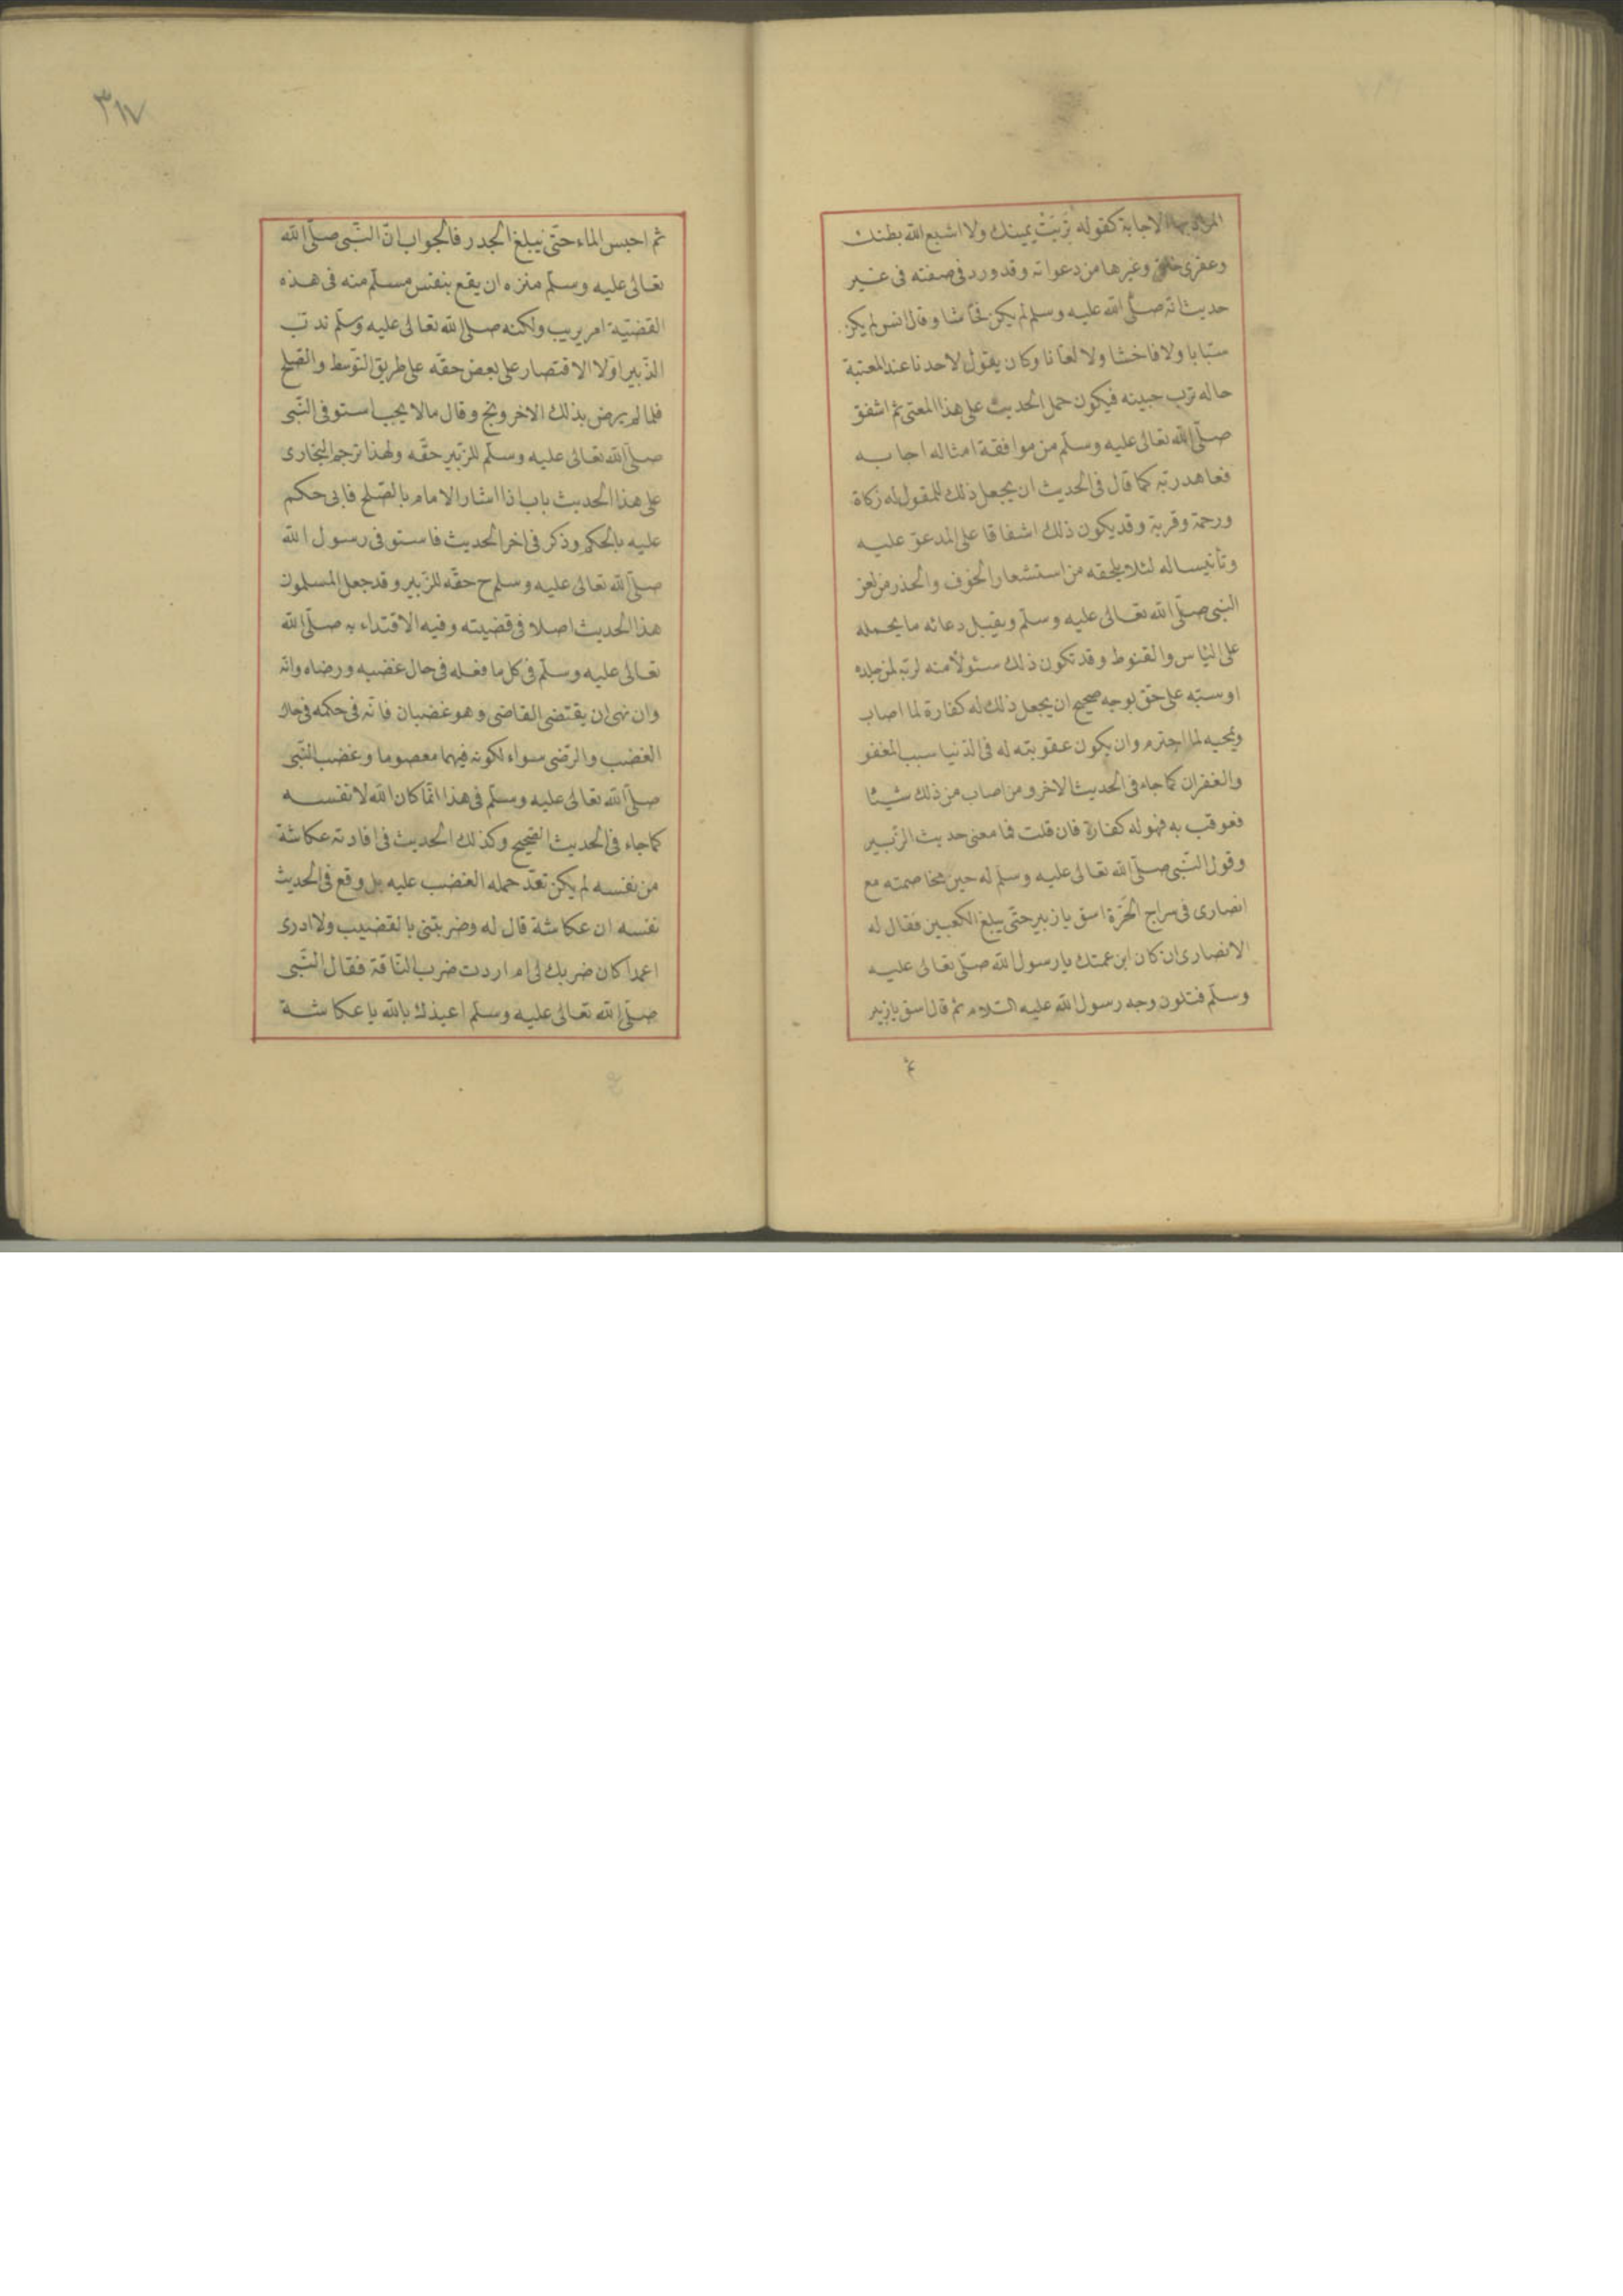 المراد بها الاجابة كقوله تَرِبَتْ يمينك ولا اشبع الله بطنك
وعقرى حلقى وغيرها من دعواته وقد ورد فى صفته فى غير
حديث انه صلّى الله عليه وسلم لم يكن فحّاشا وقال انس لم يكن
سبّابا ولا فاحشا ولا لعّانا وكان يقول لاحدنا عند المعتبة
ماله ترب جبينه فيكون حمل الحديث على هذا المعنى ثم اشفق
صلّى الله تعالى عليه وسلّم من موافقة امثاله اجابه
فعاهد ربّه كما قال فى الحديث ان يجعل ذلك للمقول له زكاة
ورحمة وقربة وقد يكون ذلك اشفاقا على المدعوّ عليه
وتأنيسا له لئلا يلحقه من استشعار الخوف والحذر من لعن
النبى صلّى الله تعالى عليه وسلّم وبقبل دعائه ما يحمله
على اليأس والقنوط وقد تكون ذلك سئولا منه لربّه لمن جلده
او سبّه على حقّ بوجه صحيح ان يجعل ذلك له كفارة لما اصاب
ويمحيه لما اجترم وان يكون عقوبته له فى الدّنيا سبب المغفو
والغفران كما جاء فى الحديث الاخر ومن اصاب من ذلك شيئا
فعوقب به فهو له كفارة فان قلت فما معنى حديث الزّبير
وقول النّبى صلّى الله تعالى عليه وسلّم له حين مخاصمته مع
انصارى فى سراج الحَرّة اسق يا زبير حتّى يبلغ الكعبين فقال له
الانصارى ان كان ابن عمتك يا رسول الله صلّى تعالى عليه
وسلّم فتلون وجه رسول الله عليه السّلام ثم قال اسق يا زبير
ثم
٣١٧
ثم احبس الماء حتّى يبلغ الجدر فالجواب انّ النّبى صلّى الله
تعالى عليه وسلّم منزه ان يقع بنفس مسلّم منه فى هذه
القضيّة امر يريب ولكنه صلى الله تعالى عليه وسلّم ندب
الزّبير اوّلا الاقتصار على بعض حقّه على طريق التّوسط والصّلح
فلما لم يرض بذلك الاخر ولجّ وقال مالا يجب استوفى النّبى
صلّى الله تعالى عليه وسلّم للزّبير حقّه ولهذا ترجم البخارى
على هذا الحديث باب اذا اشار الامام بالصّلح فابى حكم
عليه بالحكم وذكر فى اخر الحديث فاستوفى رسول الله
صلّى الله تعالى عليه وسلم ح حقّه للزّبير وقد جعل المسلمون
هذا الحديث اصلا فى قضيته وفيه الاقتداء به صلّى الله
تعالى عليه وسلّم فى كل ما فعله فى حال غضبه ورضاه وانّه
وان نهى ان يقتضى القاضى وهو غضبان فانّه فى حكمه فى حال
الغضب والرّضى سواء لكونه فيهما معصوما وغضب النّبى
صلّى الله تعالى عليه وسلّم فى هذا انّما كان الله لا نفسه
كما جاء فى الحديث الصّحيح وكذلك الحديث فى افادته عكاشة
من نفسه لم يكن تعدّ حمله الغضب عليه بل وقع فى الحديث
نفسه ان عكاشة قال له وضربتنى بالقضيب ولا ادرى
اعمدا كان ضربك لى ام اردت ضرب النّاقة فقال النّبى
صلّى الله تعالى عليه وسلّم اعيذك بالله يا عكاشة